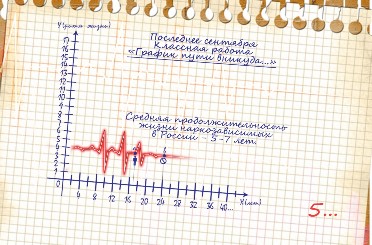 Y(уровень жизни)
Последнее сентября
Классная работа
«График пути вникуда...»
17
16
15
14
13
12
11
10
9
8
7
6
5
4
3
2
1
0
Средняя продолжительность
жизни наркозависимых
в России - 5-7 лет.
4 8 12 16 20 24 28 32 36 40... X(лет)
5...